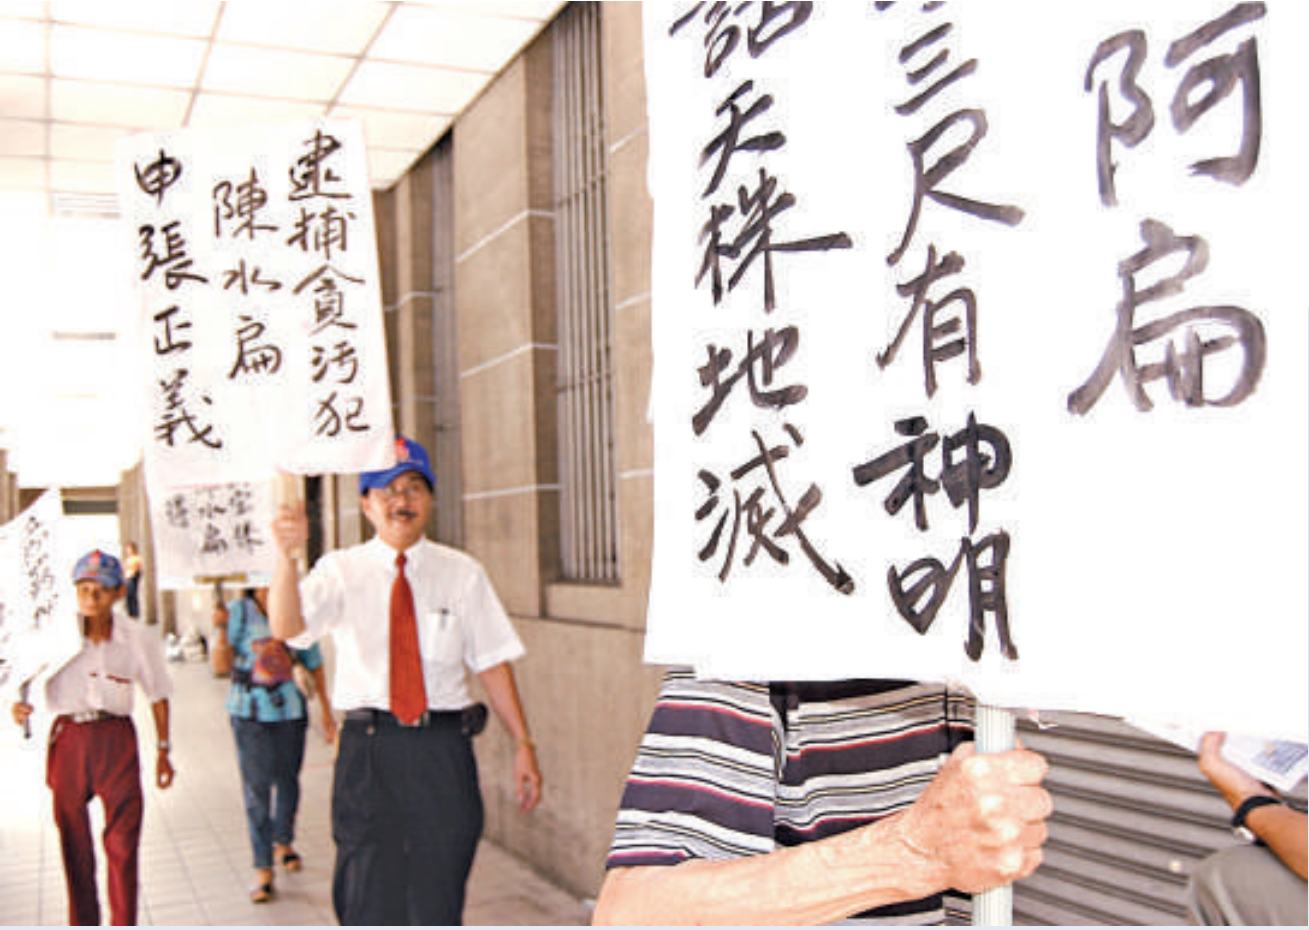 逮捕貪污犯
陳水扁
申張正義
水扁
阿扁
三尺有神明
話天株地滅